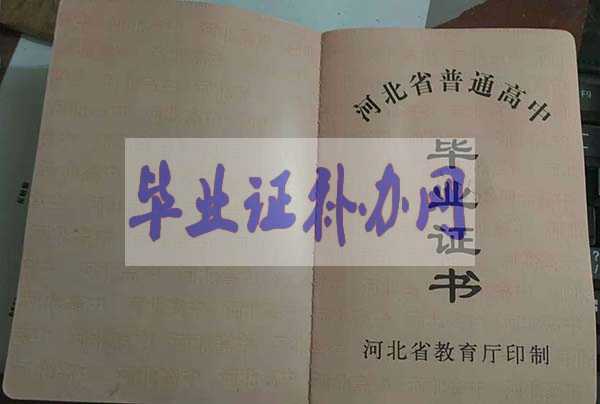 河北省普通高中
毕业证书
毕业证补办网
河北省教育厅印制